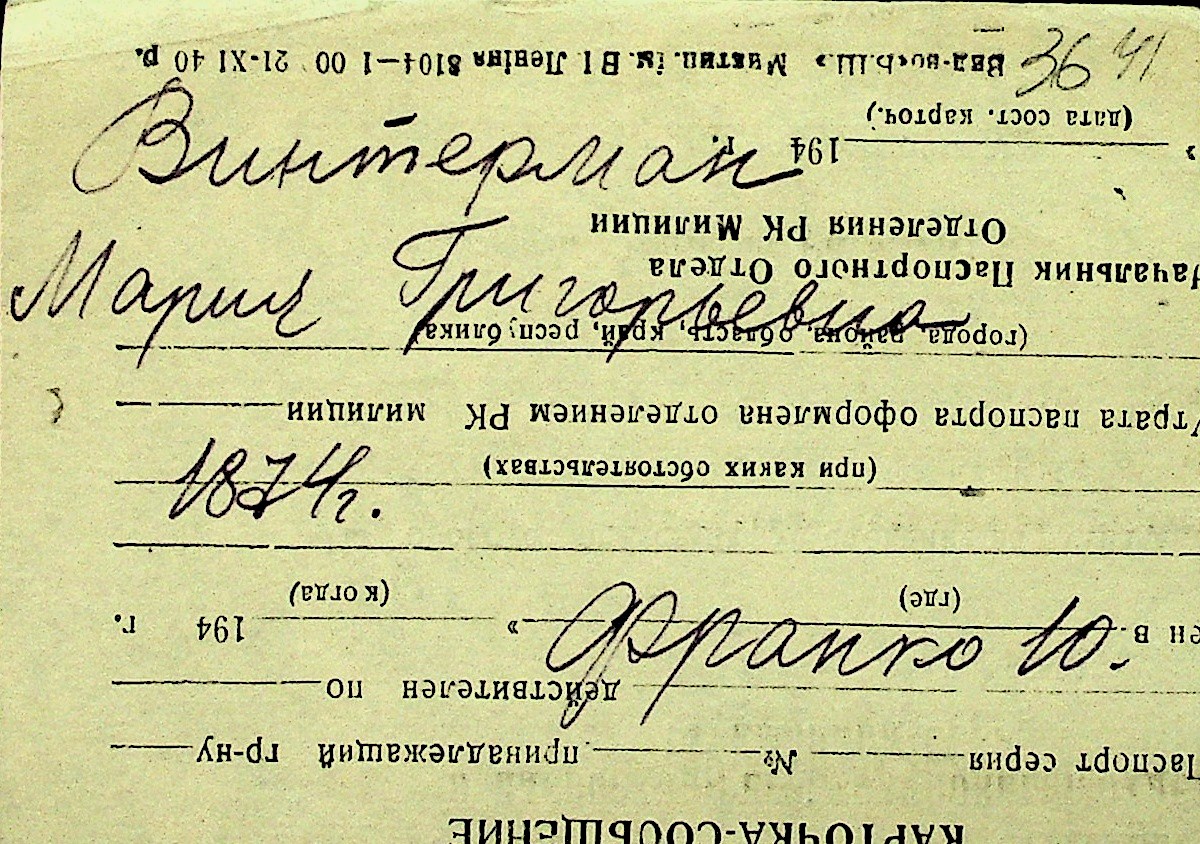 36 41
Винтерман
Мария Григорьевна
1874г.
Франко 10.
КАРТОЧКА-СООБЩЕНИЕ
Паспорт серия № принадлежащий гр-ну
действителен по
ен в (где) » (когда) 194 г.
(при каких обстоятельствах)
Утрата паспорта оформлена отделением РК милиции
(города, района, область, край, республика)
Начальник Паспортного Отдела
Отделения РК Милиции
» 194 г.
(дата сост. карточ.)
Вид-во «Б.Ш.» ім. В І Леніна 8104—1 00 21-XI 40 р.